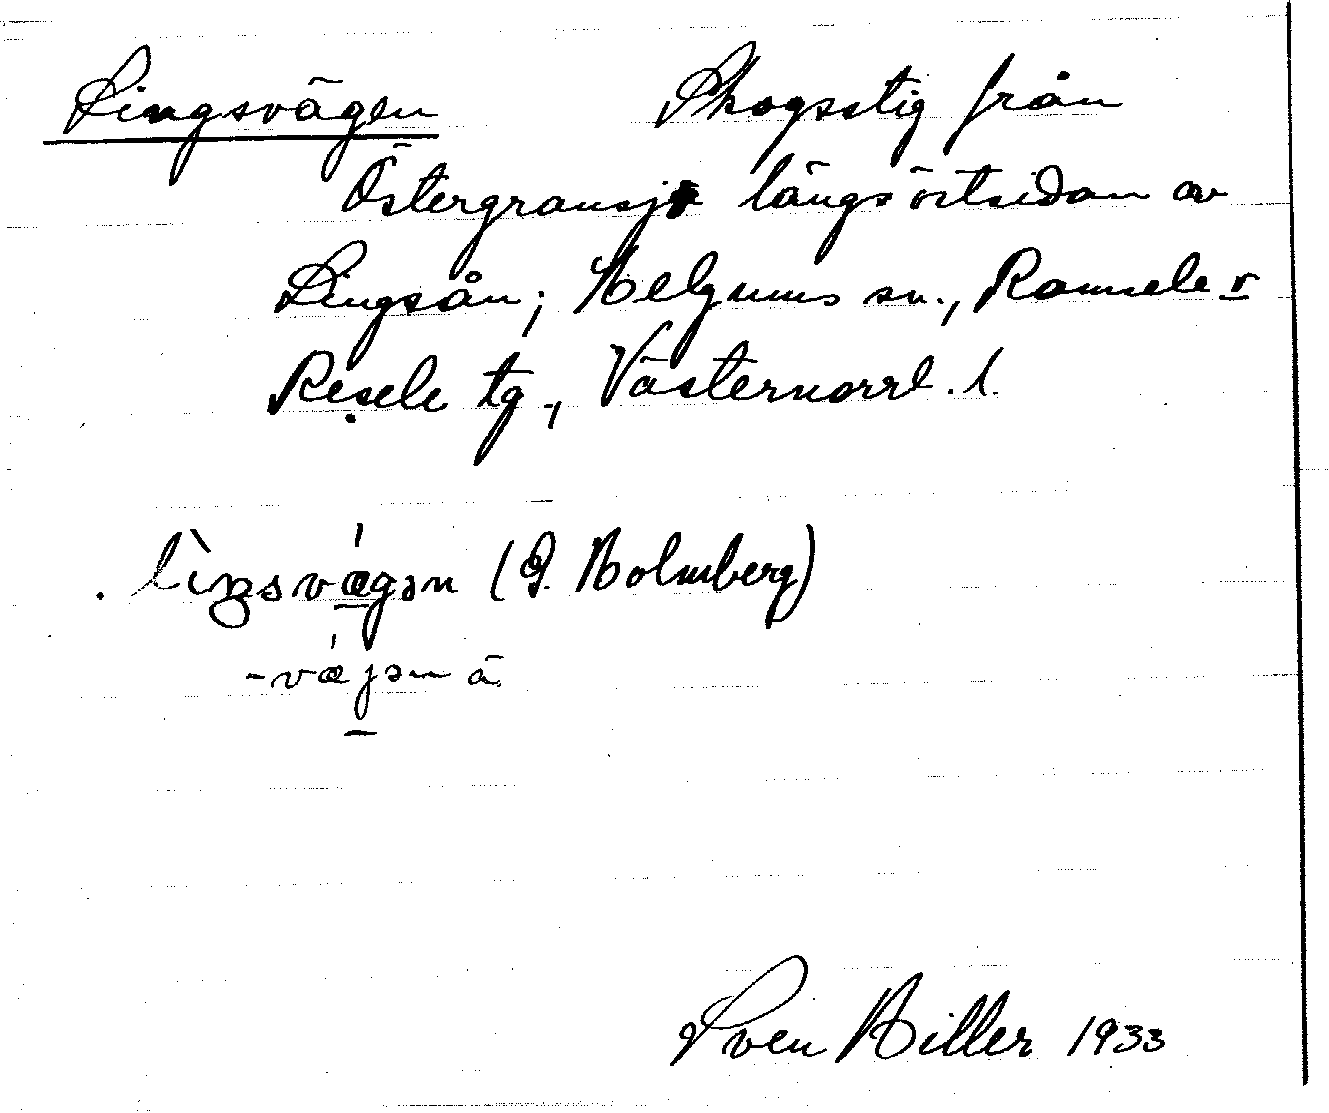 Lingsvägen Skogsstig från
Östergransjö längs östsidan av
Lingsån; Helgums sn., Ramsele o
Resele tg., Västernorrl. l.
lìŋsvǽgən (G. Holmberg)
-vǽjən ä.
Sven Hiller 1933